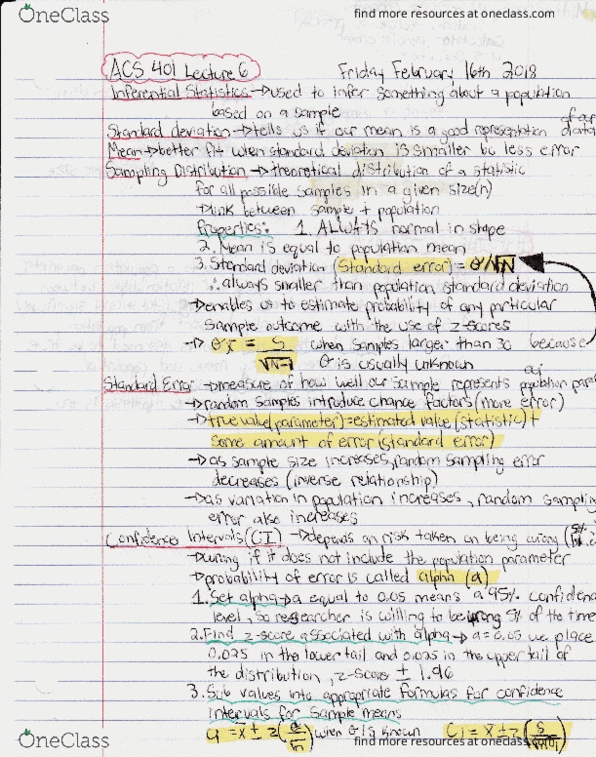 OneClass
find more resources at oneclass.com
ACS 401 Lecture 6 Friday February 16th 2018
Inferential Statistics → used to infer something about a population
based on a sample
Standard deviation → tells us if our mean is a good representation of our data
Mean → better fit when standard deviation is smaller bc less error
Sampling Distribution → theoretical distribution of a statistic
for all possible samples in a given size (n)
→ link between sample + population
Properties: 1. ALWAYS normal in shape
2. Mean is equal to population mean
3. Standard deviation (Standard error) = σ/√N
∴ always smaller than population standard deviation
→ enables us to estimate probability of any particular
sample outcome with the use of z-scores
→ σx̄ = S/√N-1 when samples larger than 30 because
σ is usually unknown
Standard Error → measure of how well our sample represents our population
→ random samples introduce chance factors (more error)
→ true value (parameter) = estimated value (statistic) +
some amount of error (standard error)
→ as sample size increases, random sampling error
decreases (inverse relationship)
→ as variation in population increases, random sampling
error also increases
Confidence Intervals (CI) → depends on risk taken on being wrong
→ wrong if it does not include the population parameter
→ probability of error is called alpha (a)
1. Set alpha → a equal to 0.05 means a 95%
level, so researcher is willing to be wrong 5% of the time
2. Find z-score associated with alpha → a = 0.05 we place
0.025 in the lower tail and 0.025 in the upper tail of
the distribution, z-score ± 1.96
3. Sub values into appropriate formulas for confidence
intervals for sample means
when σ is known
OneClass
find more resources at oneclass.com